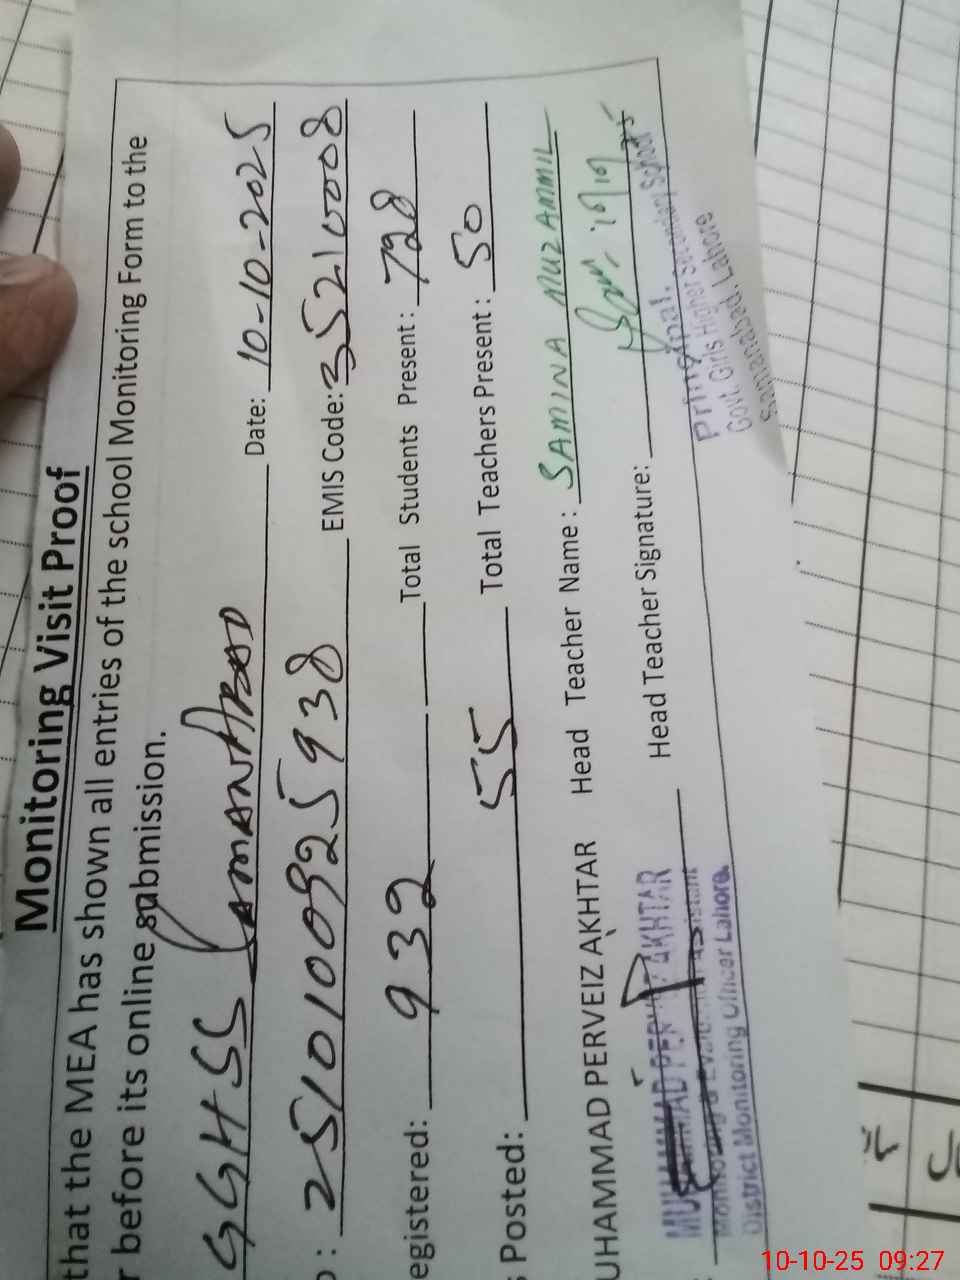 Monitoring Visit Proof
that the MEA has shown all entries of the school Monitoring Form to the
r before its online submission.
GGHSS SAMANABAD Date: 10-10-2025
: 2510100925938 EMIS Code: 35210008
egistered: 932 Total Students Present: 728
Posted: 55 Total Teachers Present: 50
UHAMMAD PERVEIZ AKHTAR Head Teacher Name: SAMINA MUZAMMIL
Head Teacher Signature:
MUHAMMAD PERVEIZ AKHTAR
Monitoring & Evaluation Assistant
District Monitoring Officer Lahore.
Principal.
Govt. Girls Higher Secondary School
Samanabad, Lahore
10-10-25 09:27